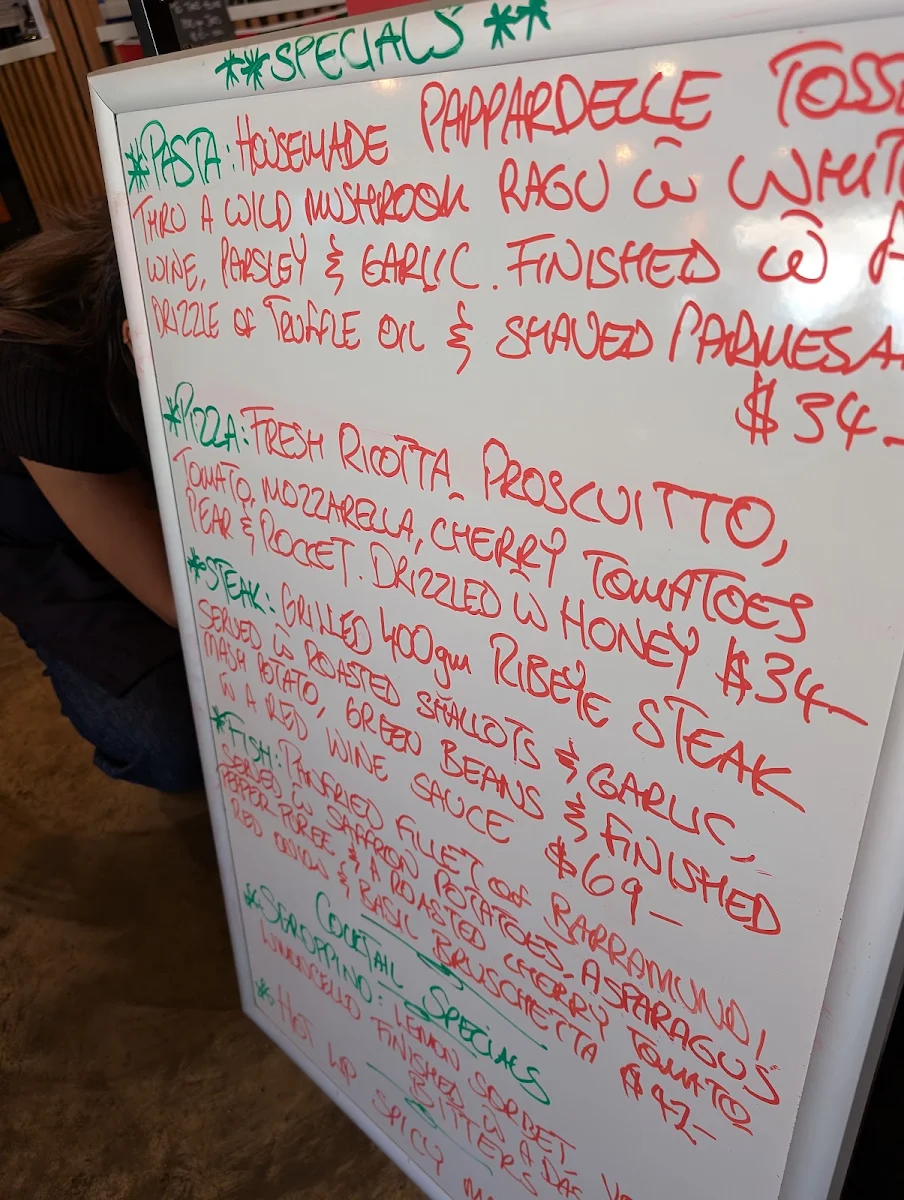 **SPECIALS**
*PASTA: HOUSEMADE PAPPARDELLE TOSSE
THRO A WILD MUSHROOM RAGU W WHIT
WINE, PARSLEY & GARLIC. FINISHED W A
DRIZZLE OF TRUFFLE OIL & SHAVED PARMESA
$34-
*PIZZA: FRESH RICOTTA PROSCUITTO,
TOMATO, MOZZARELLA, CHERRY TOMATOES
PEAR & ROCKET. DRIZZLED W HONEY $34-
*STEAK: GRILLED 400gm RIBEYE STEAK
SERVED W ROASTED SHALLOTS & GARLIC,
MASH POTATO, GREEN BEANS & FINISHED
W A RED WINE SAUCE $69-
*FISH: PANFRIED FILLET OF BARRAMUNDI
SERVED W SAFFRON POTATOES, ASPARAGUS
PEPPER PUREE & A ROASTED CHERRY TOMATO
RED ONION & BASIL BRUSCHETTA $42-
COCKTAIL SPECIALS
*SGROPPINO: LEMON SORBET
LIMONCELLO FINISHED W A DAS
BITTERS
*HOT SPICY